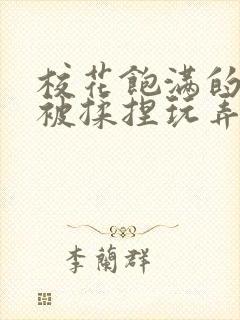 校花飽满的
被揉捏玩弄
李蘭群